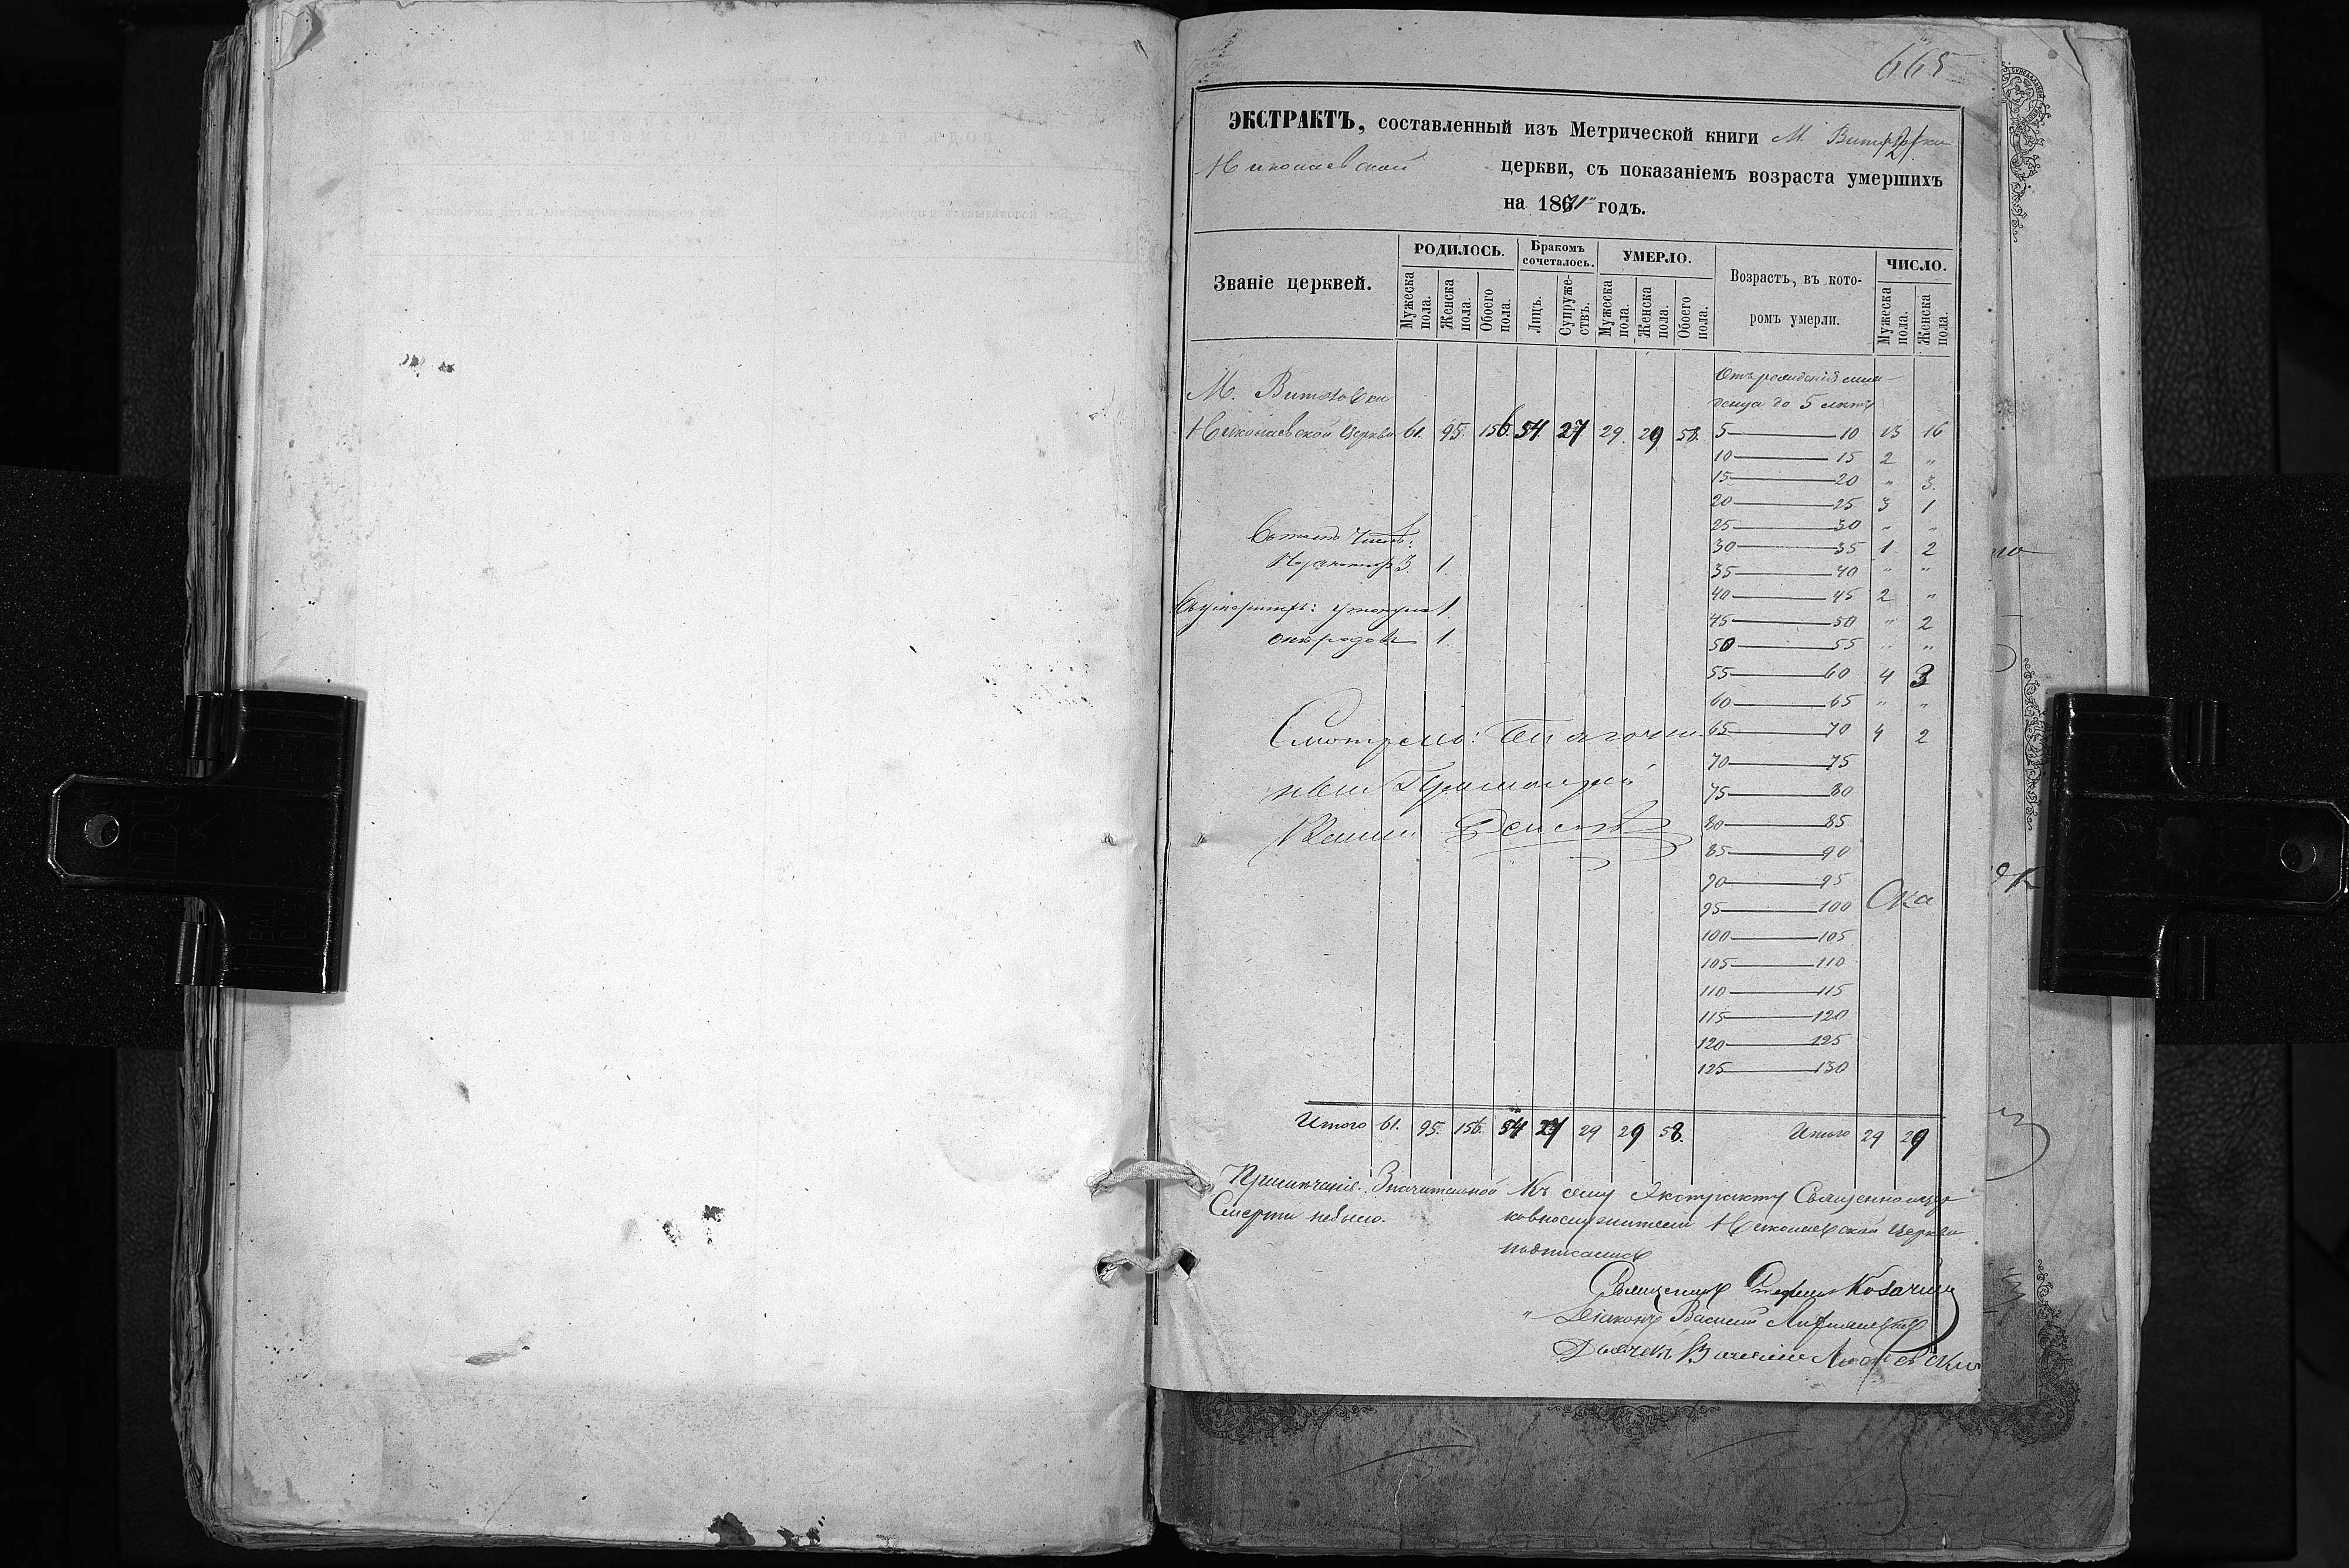 665
ЭКСТРАКТЪ, составленный изъ Метрической книги М.
Николаевской церкви, съ показаніемъ возраста умершихъ
на 1871 годъ.
Званіе церквей. РОДИЛОСЬ. Бракомъ сочеталось. УМЕРЛО. Возрастъ, въ которомъ умерли. ЧИСЛО.
Мужеска пола. Женска пола. Обоего пола. Лицъ. Супружествъ. Мужеска пола. Женска пола. Обоего пола. Мужеска пола. Женска пола.
Отъ рожденія мла-
денца до 5 лѣтъ
М.
Николаевской Церкви 61. 95. 156. 54 27 29. 29 58. 5 — 10 13 16
10 — 15 2 "
15 — 20 " 3.
20 — 25 3 1
25 — 30 " "
30 — 35 1 2
35 — 40 " "
40 — 45 2 "
45 — 50 " 2
50 — 55 " "
55 — 60 4 3
60 — 65 " "
65 — 70 4 2
70 — 75
75 — 80
80 — 85
85 — 90
90 — 95
95 — 100
100 — 105
105 — 110
110 — 115
115 — 120
120 — 125
125 — 130
Въ томъ числѣ:
3. 1.
1.
1.
Смотрѣлъ: Благочин-
ный
Итого 61. 95. 156. 54 27 29 29 58. Итого 29 29
Примѣчаніе. Значительной
Смерти небыло.
Къ сему Экстракту Священноцер-
ковнослужители Николаевской Церкви
подписались
Священникъ Стефанъ Козачин
Діаконъ Василій
Дьячекъ